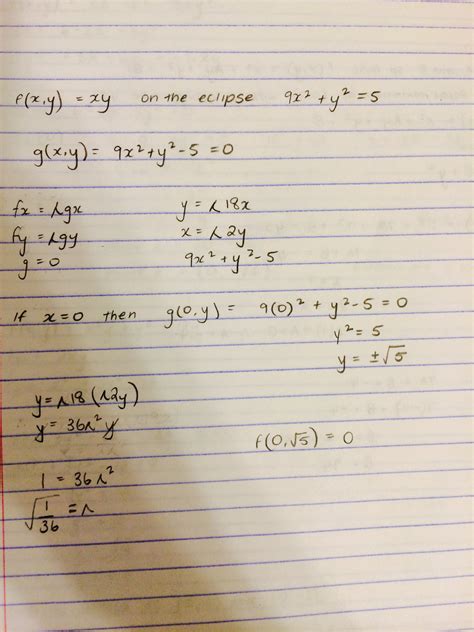 f(x,y) = xy on the eclipse 9x² + y² = 5
g(x,y) = 9x² + y² - 5 = 0
fx = λgx y = λ18x
fy = λgy x = λ2y
g = 0 9x² + y² - 5
If x = 0 then g(0,y) = 9(0)² + y² - 5 = 0
y² = 5
y = ±√5
y = λ18(λ2y)
y = 36λ²y
f(0,√5) = 0
1 = 36λ²
√(1/36) = λ